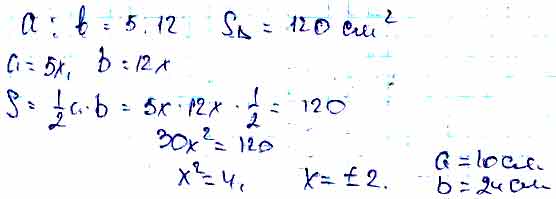 a : b = 5 : 12 S△ = 120 см²
a = 5x, b = 12x
S = 1/2 a · b = 5x · 12x · 1/2 = 120
30x² = 120
x² = 4, x = ± 2.
a = 10 см.
b = 24 см